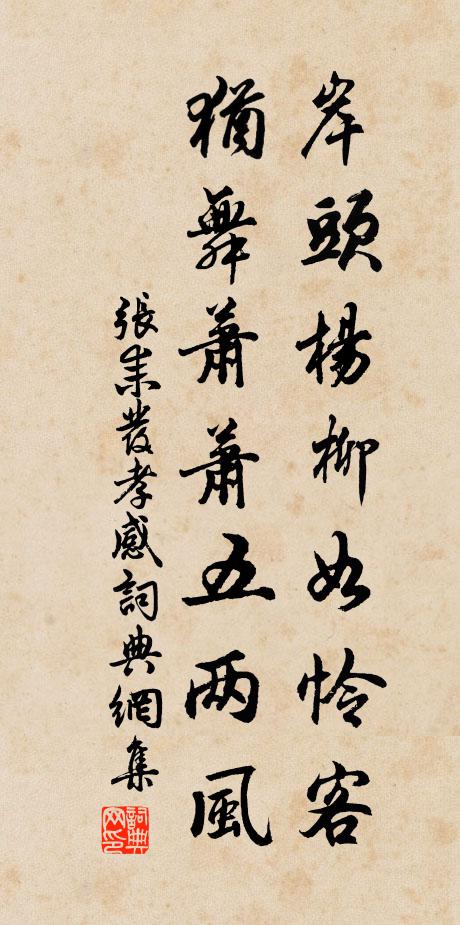 岸頭楊柳如怜客
猶舞蕭蕭五两風
張耒發孝感詞典網集
詞典网印